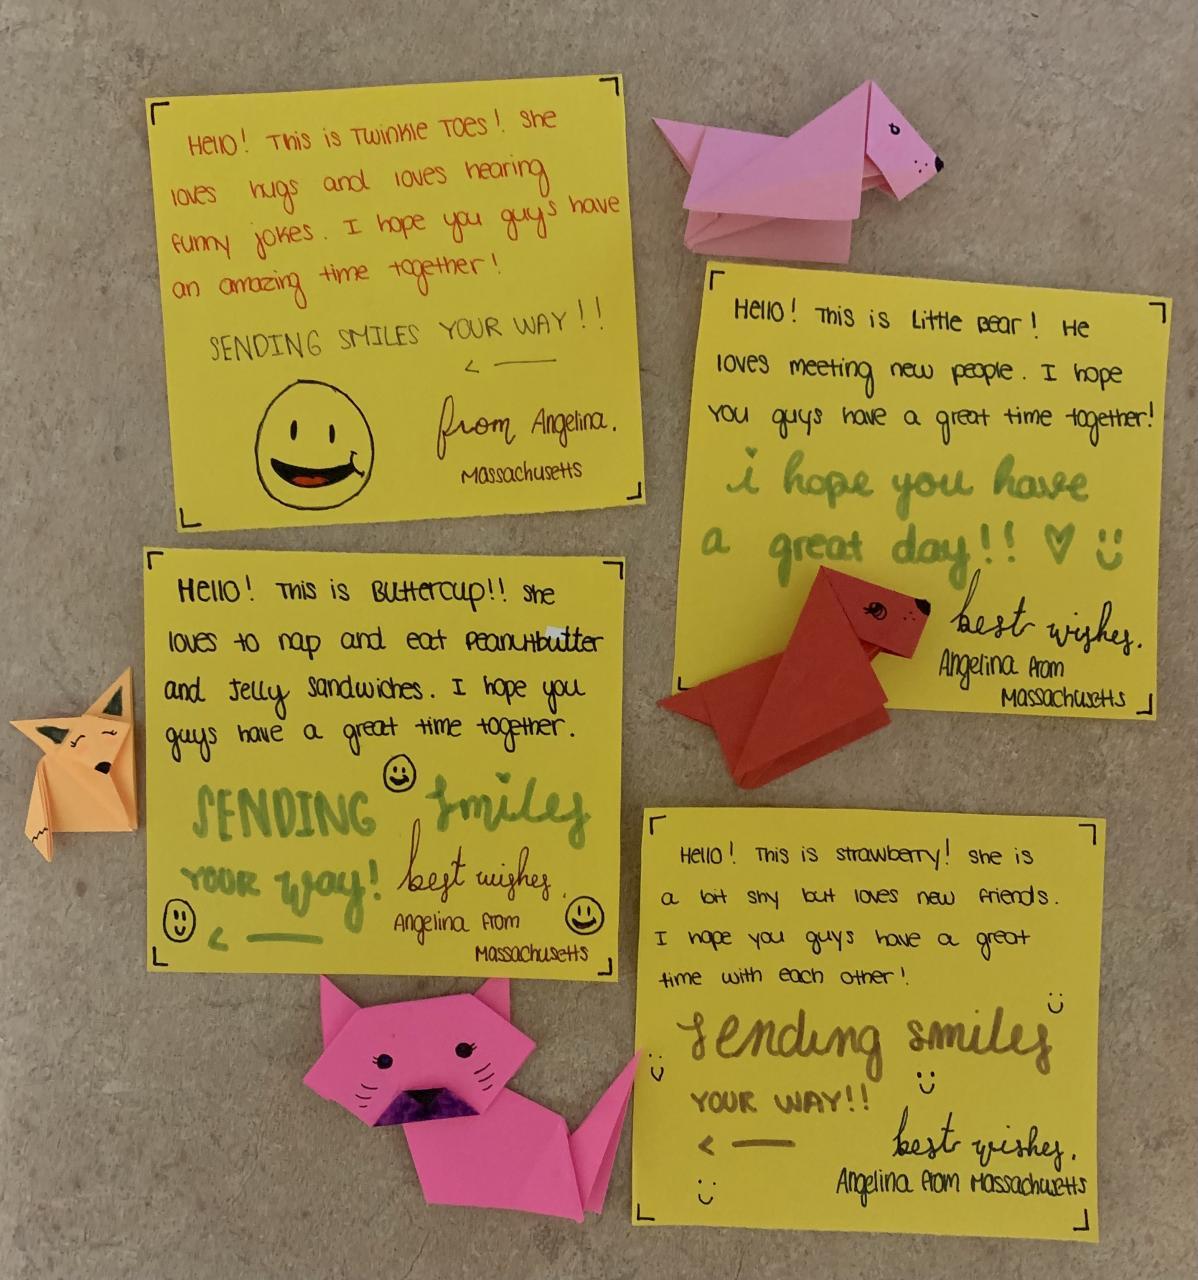 Hello! This is Twinkle Toes! She
loves hugs and loves hearing
funny jokes. I hope you guys have
an amazing time together!
SENDING SMILES YOUR WAY!!
from Angelina.
Massachusetts
Hello! This is Little Bear! He
loves meeting new people. I hope
you guys have a great time together!
i hope you have
a great day!!
best wishes.
Angelina from
Massachusetts
Hello! This is Buttercup!! She
loves to nap and eat peanutbutter
and Jelly sandwiches. I hope you
guys have a great time together.
SENDING smiles
YOUR way!
best wishes.
Angelina from
Massachusetts
Hello! This is strawberry! she is
a bit shy but loves new friends.
I hope you guys have a great
time with each other!
sending smiles
YOUR WAY!!
best wishes.
Angelina from Massachusetts